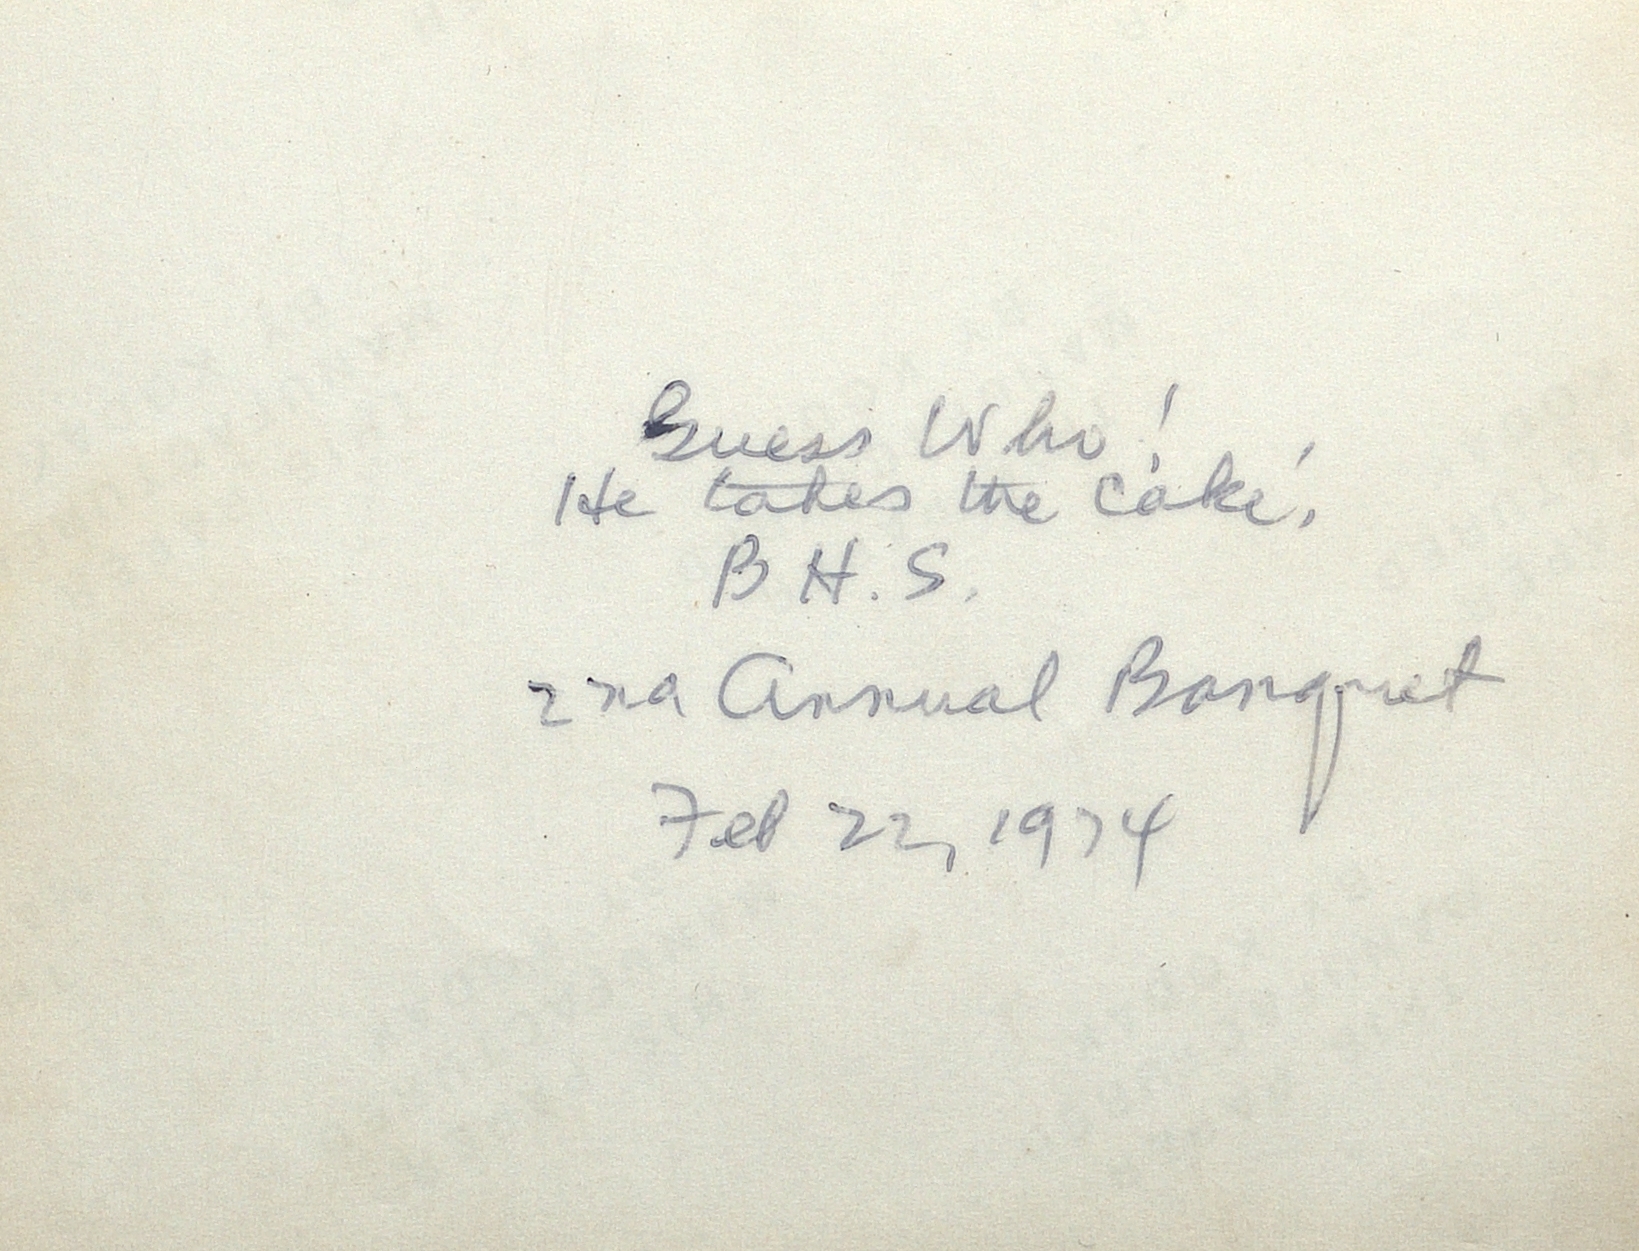 Guess Who!
He takes the cake!
B H. S.
2nd Annual Banquet
Feb 22, 1974